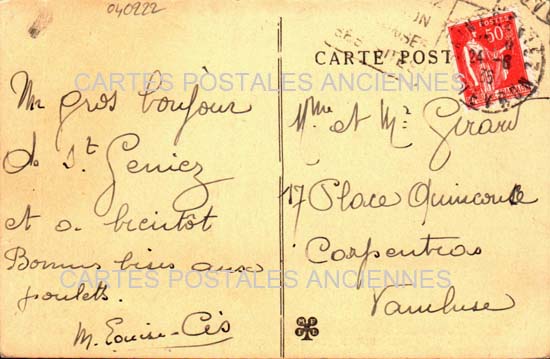 040222
CARTE POST
POSTES
50
24 - 8
Un gros bonjour
de St. Geniez
et a bientôt
Bonnes bises aux
poulets.
M. Louise - Cès
Mme et Mr Girard
17 Place Quinconce
Carpentras
Vaucluse
CARTES POSTALES ANCIENNES
CARTES POSTALES ANCIENNES